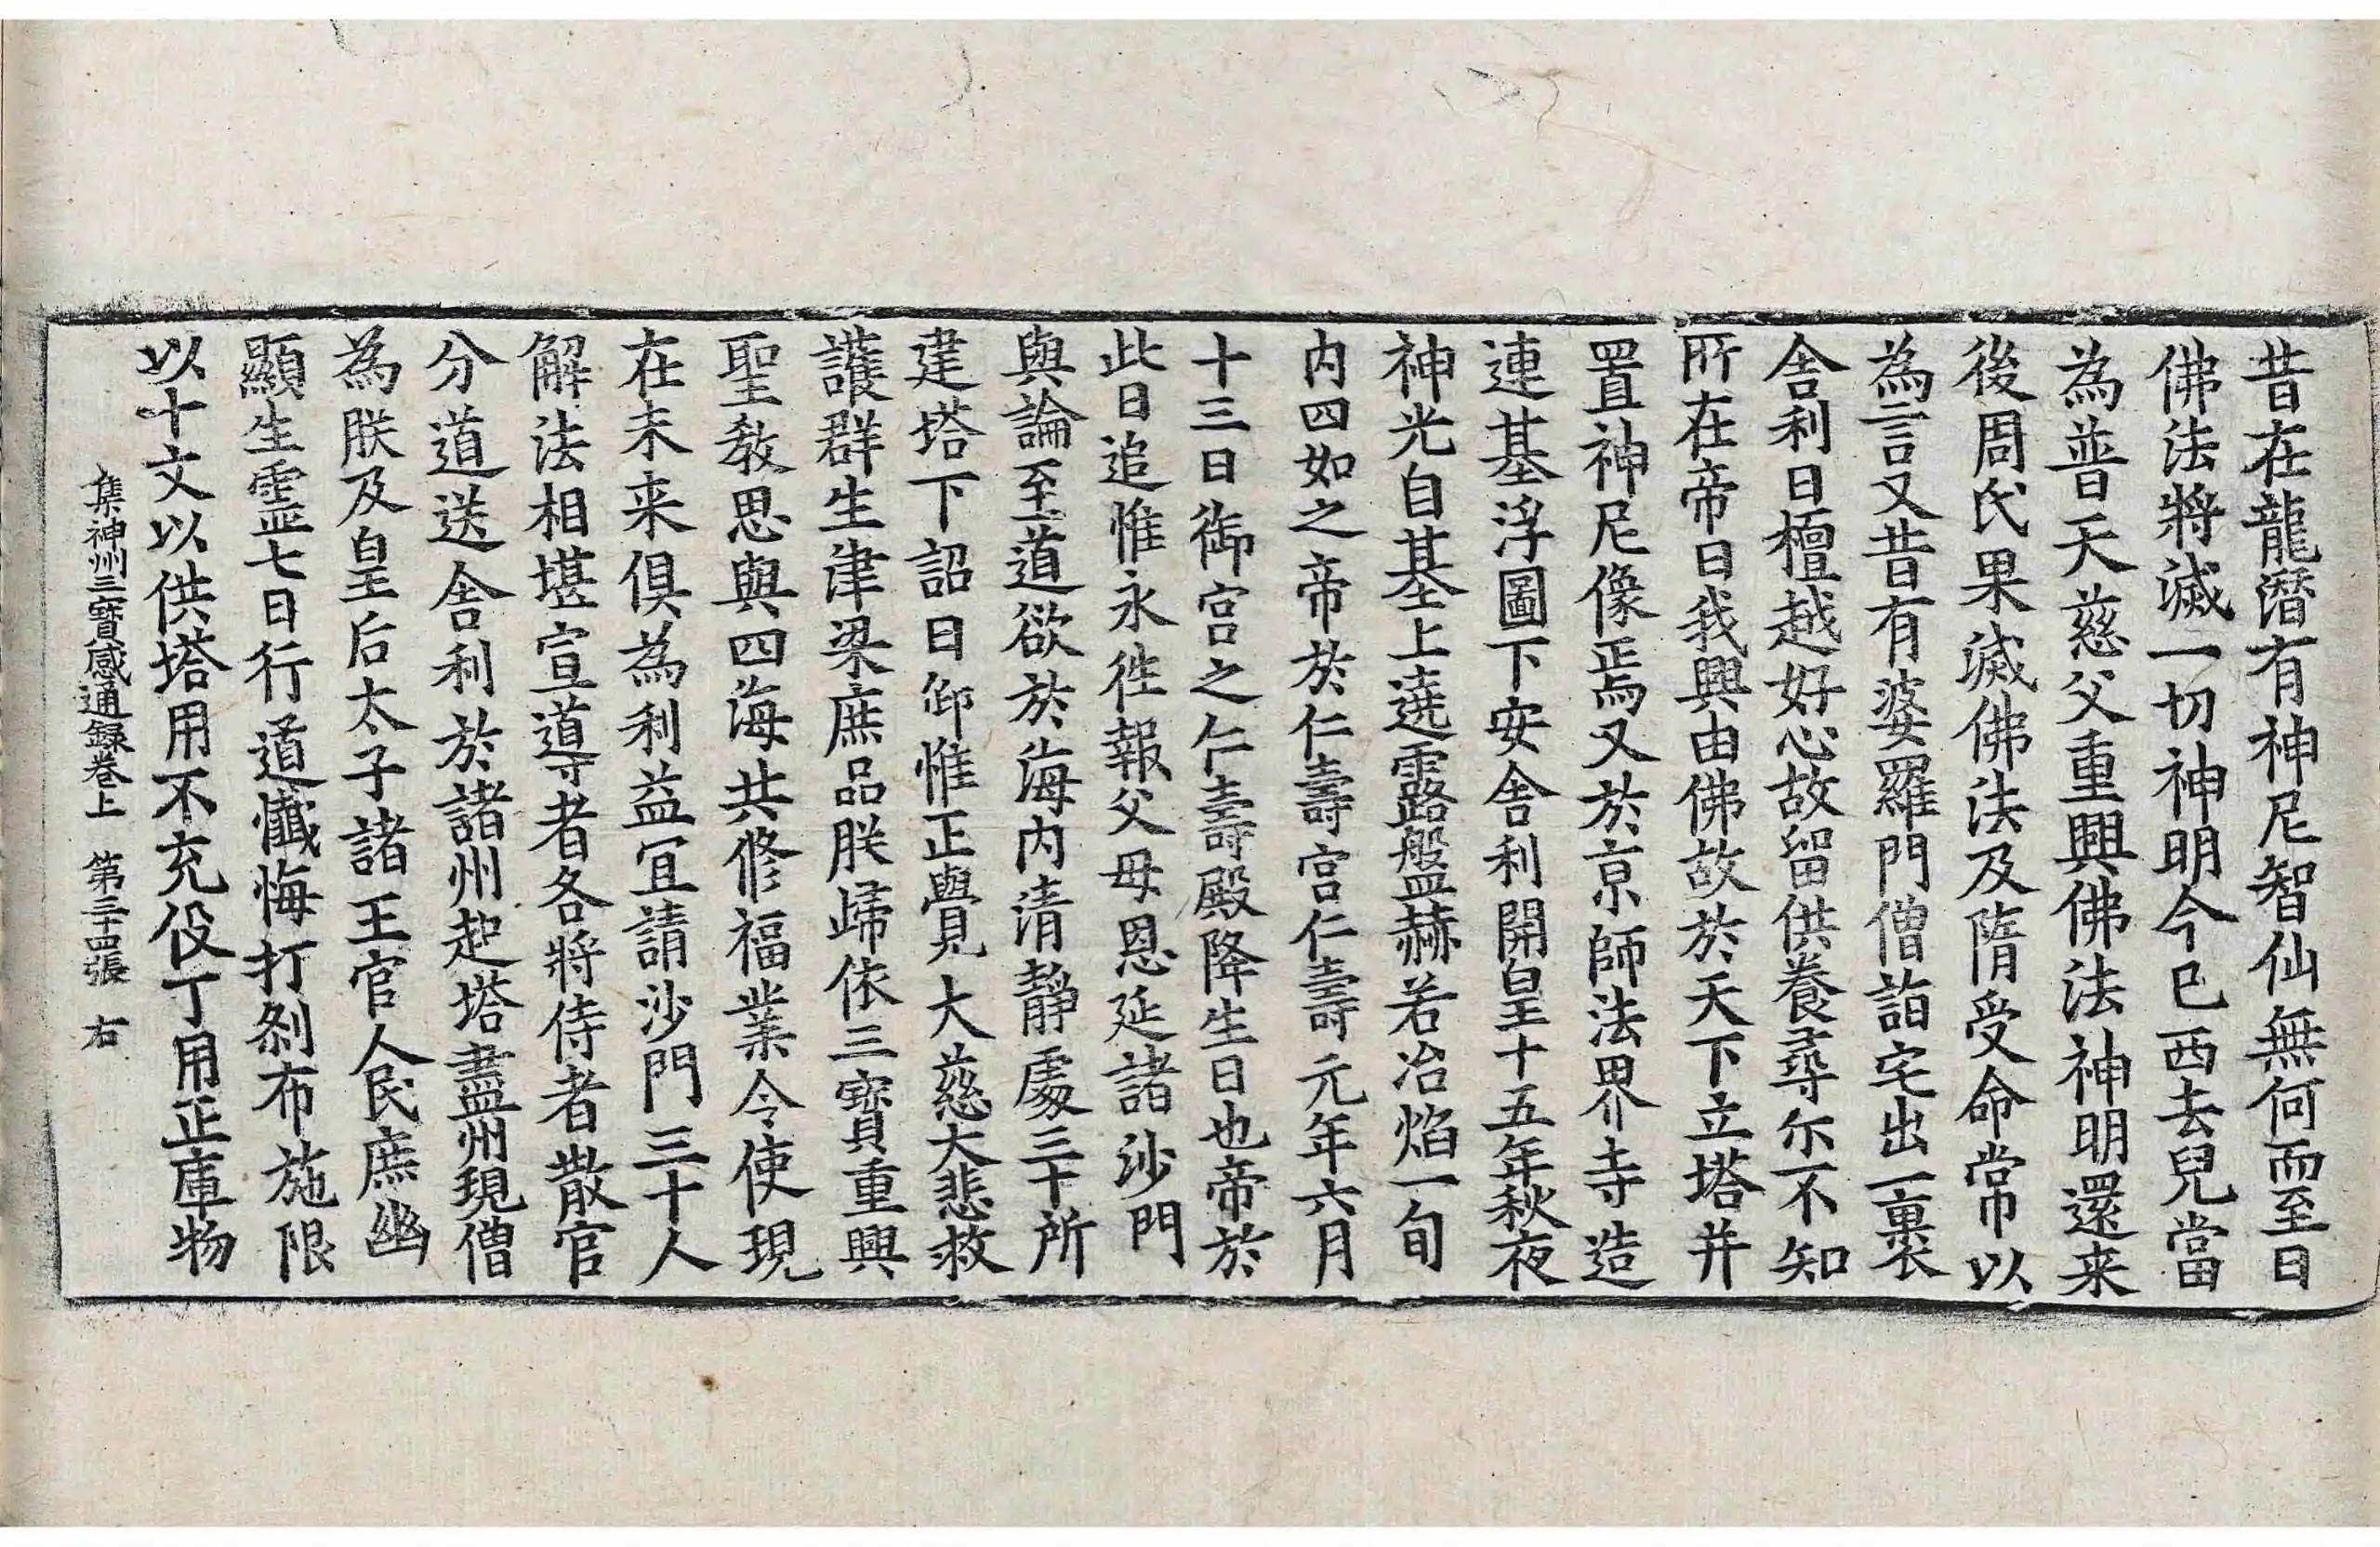 昔在龍潛有神尼智仙無何而至曰
佛法將滅一切神明今已西去兒當
為普天慈父重興佛法神明還来
後周氏果滅佛法及隋受命常以
為言又昔有婆羅門僧詣宅出一裹
舍利曰檀越好心故留供養尋尒不知
所在帝曰我興由佛故於天下立塔并
置神尼像焉又於京師法界寺造
連基浮圖下安舍利開皇十五年秋夜
神光自基上遶露盤赫若冶焰一旬
内四如之帝於仁壽宮仁壽元年六月
十三日御宮之仁壽殿降生日也帝於
此日追惟永徃報父母恩延諸沙門
與論至道欲於海内清靜處三十所
建塔下詔曰仰惟正覺大慈大悲救
護群生津梁庶品朕歸依三寶重興
聖教思與四海共修福業令使現
在未来俱為利益宜請沙門三十人
解法相堪宣導者各將侍者散官
分道送舍利於諸州起塔盡州現僧
為朕及皇后太子諸王官人民庶幽
顯生靈七日行道懺悔打剎布施限
以十文以供塔用不充役丁用正庫物
集神州三寶感通録卷上　第三十四張　右